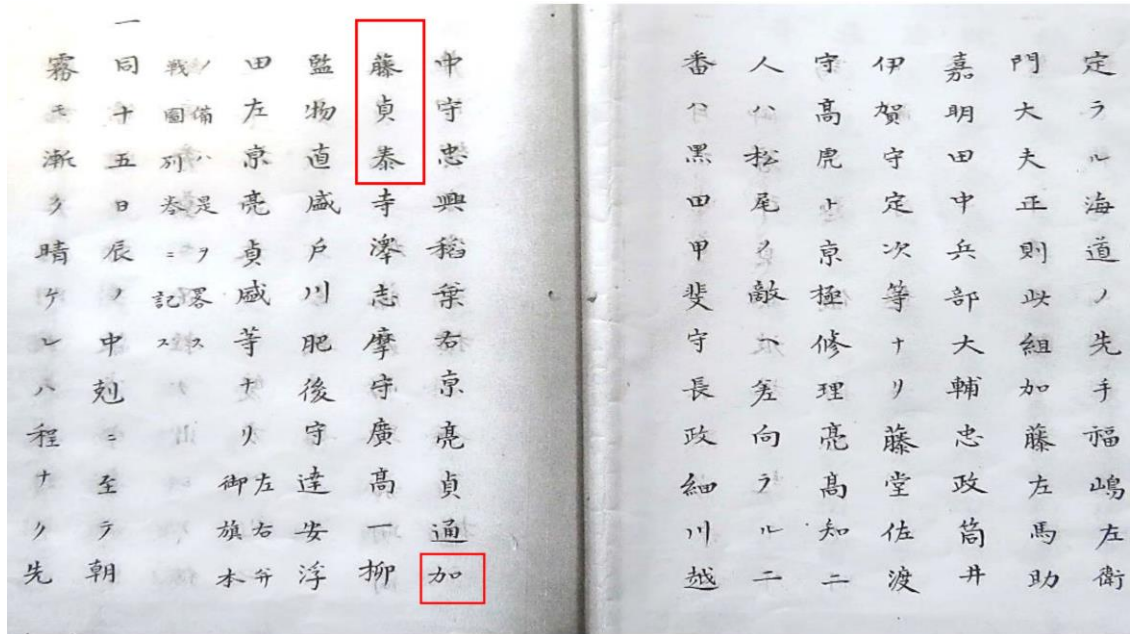 定ラル海道ノ先手福嶋左衛
門大夫正則此組加藤左馬助
嘉明田中兵部大輔忠政筒井
伊賀守定次等ナリ藤堂佐渡
守髙虎ト京極修理亮髙知二
人ハ松尾ノ敵ヘ差向ラル二
番ハ黒田甲斐守長政細川越
中守忠興稲葉右京亮貞通加
藤貞泰寺澤志摩守廣髙一柳
監物直盛戸川肥後守達安浮
田左京亮貞盛等ナリ左右并御旗本
ノ備ハ是ヲ畧ス戦圖別巻ニ記ス
一同十五日辰ノ中剋ニ至テ朝
霧モ漸ク晴ケレハ程ナク先